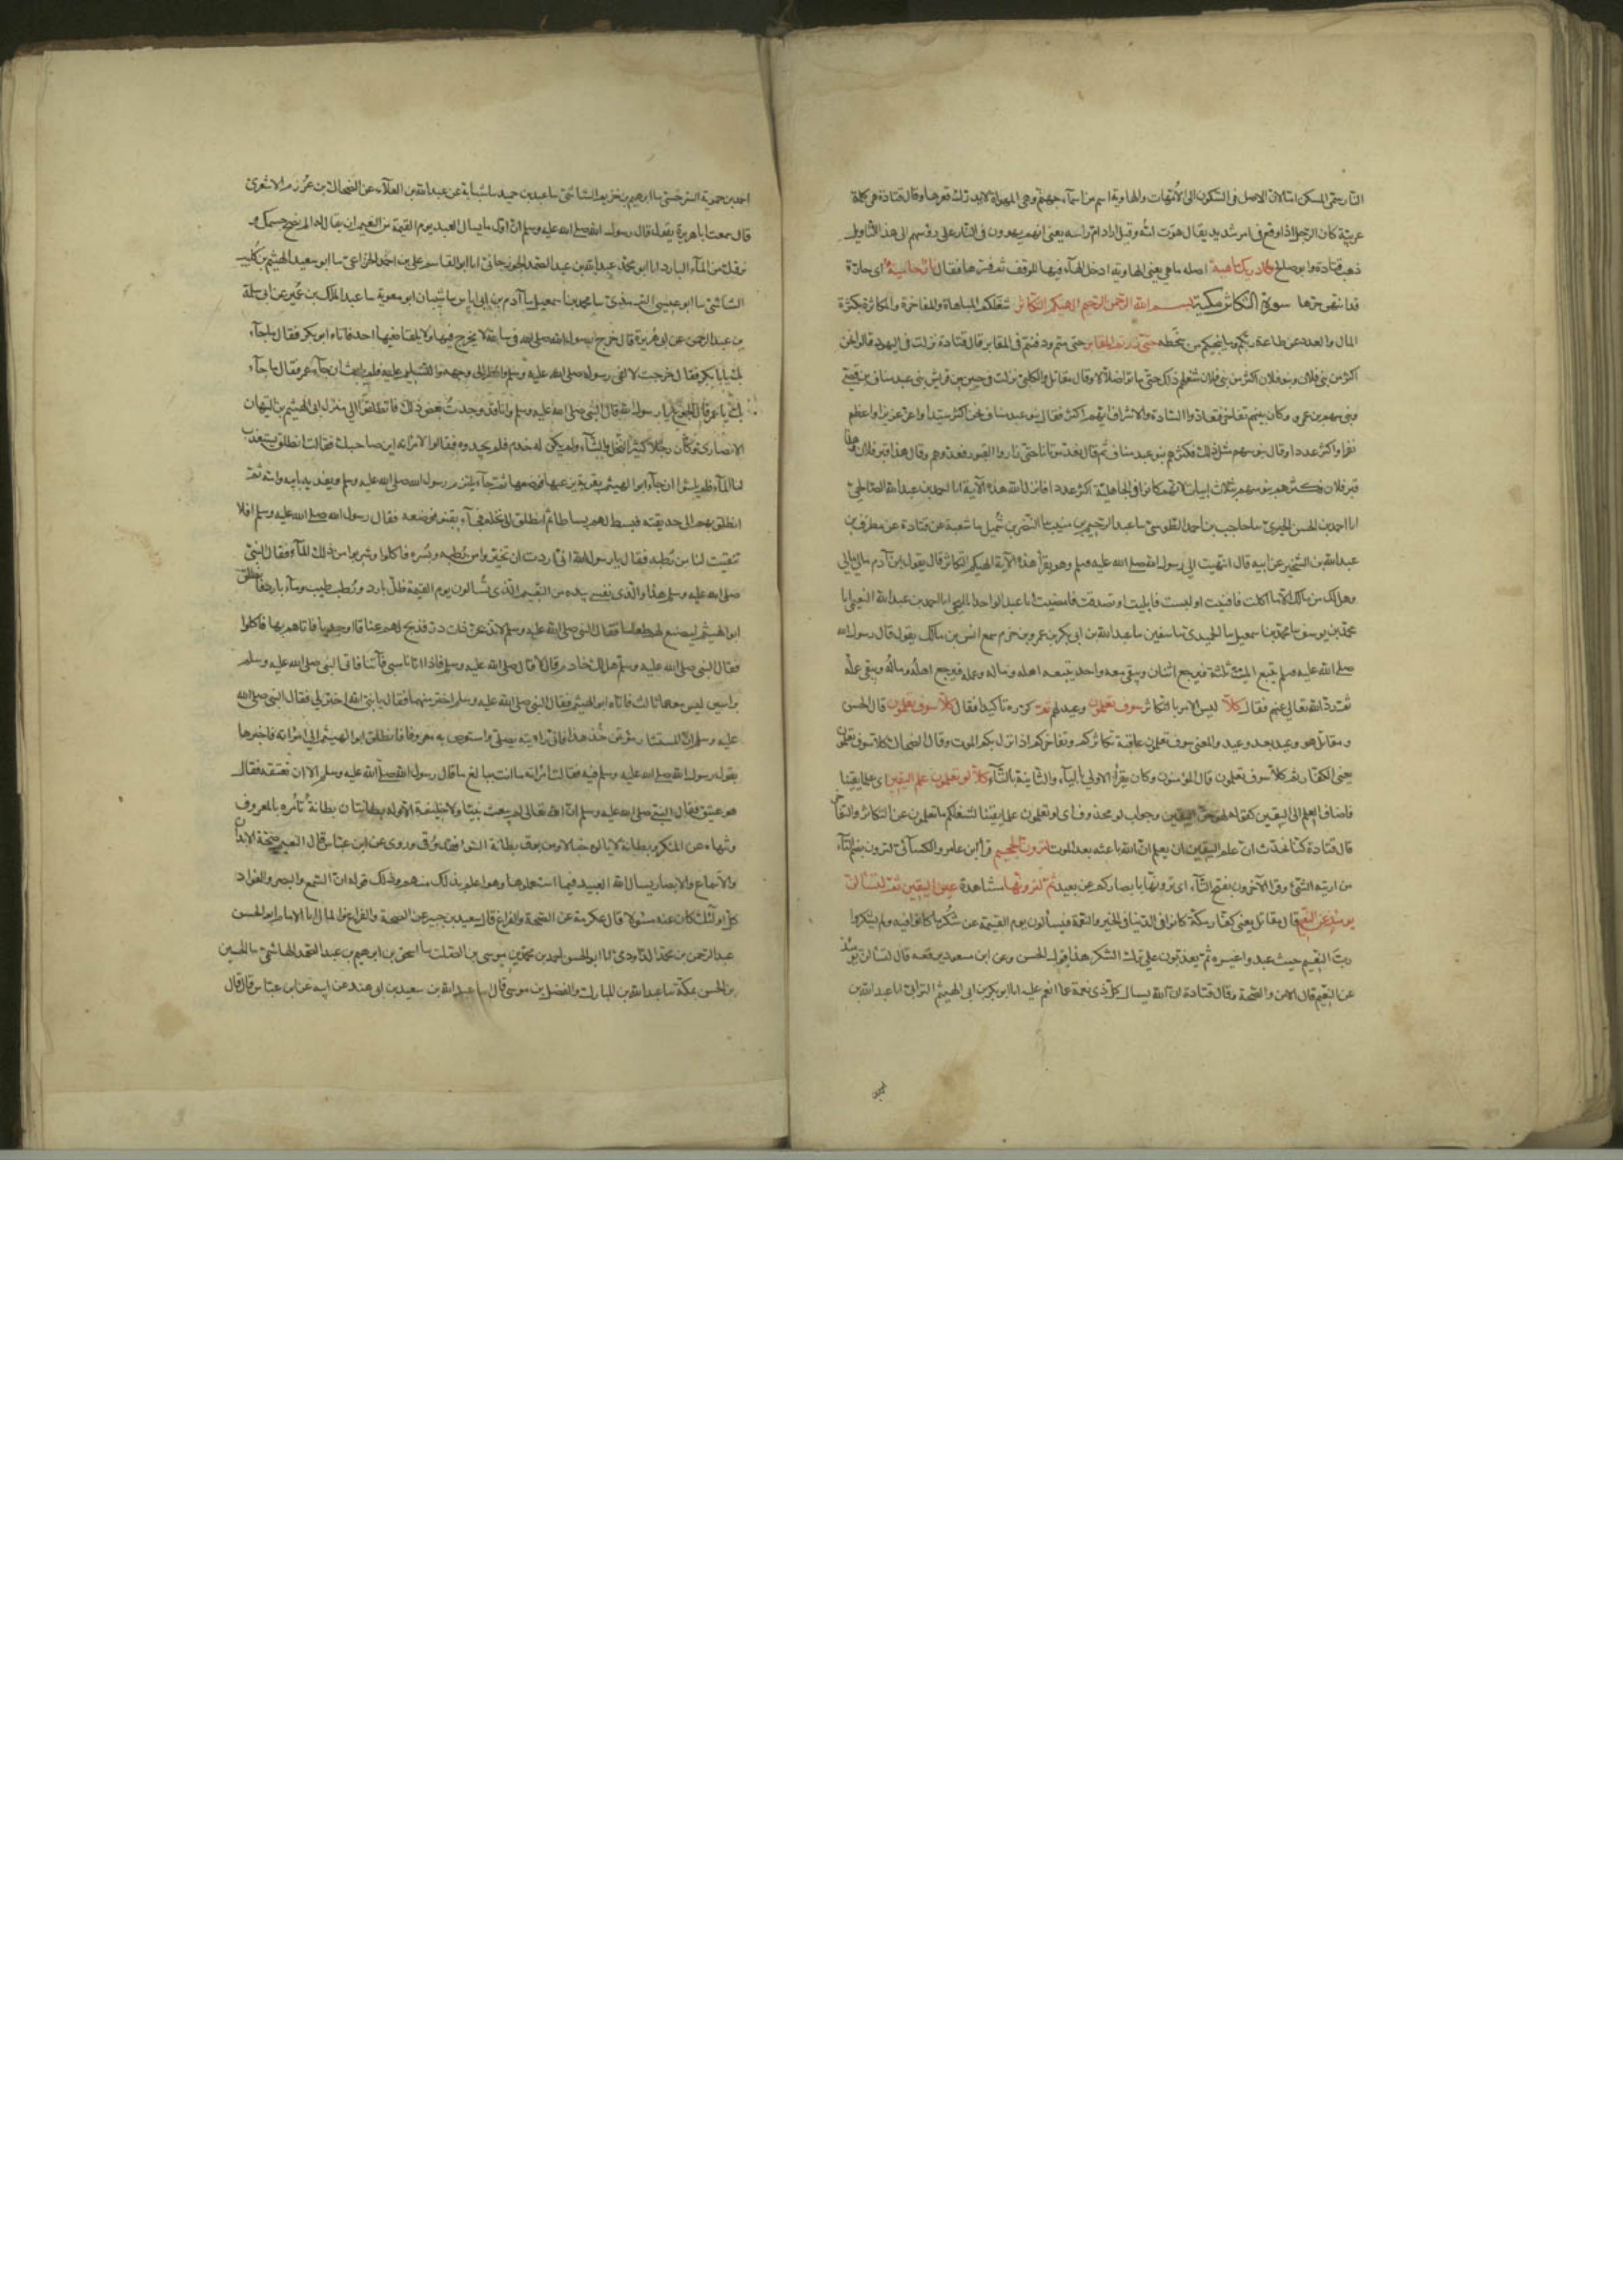 النار حتى المسكن امثالان الاصل فى السكون الى الامهات والهاوية اسم من اسماء جهنم وهى المهواة لا يدرك قعرها وقال قتادة هى كلمة
عربية كان الرجل اذا وقع فى امر شديد يقال هوت امه وقيل اراد ام راسه يعنى انهم يهوون فى النار على رؤسهم الى هذا التاويل
ذهب قتادة وابو صالح وما ادريك ماهيه اصله ما هى يعنى الهاوية ادخل الهآء فيها للوقف ثم فسرها فقال نار حامية اى حارة
قد انتهى حرها سورة التكاثر مكية بسم الله الرحمن الرحيم الهيكم التكاثر شغلكم المباهاة والمفاخرة والمكاثرة بكثرة
المال والعدد عن طاعة ربكم وما ينجيكم من سخطه حتى زرتم المقابر حتى متم ودفنتم فى المقابر قال قتادة نزلت فى اليهود قالوا نحن
اكثر من بنى فلان وبنو فلان اكثر من بنى فلان شغلهم ذلك حتى ماتوا ضلالا وقال مقاتل والكلبى نزلت فى حيين من قريش بنى عبد مناف بن قصى
وبنى سهم بن عمرو وكان بينهم تفاخر فتعادوا السادة والاشراف ايهم اكثر فقال بنو عبد مناف نحن اكثر سيدا واعز عزيزا واعظم
نفرا واكثر عددا وقال بنو سهم مثل ذلك فكثرهم بنو عبد مناف ثم قال نعد موتانا حتى زاروا القبور فعدوهم وقال هذا قبر فلان وهذا
قبر فلان فكثرهم بنو سهم بثلاث ابيات لانهم كانوا فى الجاهلية اكثر عددا فانزل الله هذه الآية انا احمد بن عبد الله الصالحى
انا احمد بن الحسن الحيرى نا حاجب بن احمد الطوسى نا عبد الرحيم بن منيب نا النضر بن شميل نا شعبة عن قتادة عن مطرف بن
عبد الله بن الشخير عن ابيه قال انتهيت الى رسول الله صلى الله عليه وسلم وهو يقرأ هذه الآية الهيكم التكاثر قال يقول ابن آدم مالى مالى
وهل لك من مالك الا ما اكلت فافنيت او لبست فابليت او تصدقت فامضيت انا عبد الواحد المليحى انا احمد بن عبد الله النعيمى انا
محمد بن يوسف نا محمد بن اسمعيل نا الحميدى نا سفين نا عبد الله بن ابى بكر بن عمرو بن حزم سمع انس بن مالك يقول قال رسول الله
صلى الله عليه وسلم يتبع الميت ثلثة فيرجع اثنان ويبقى معه واحد يتبعه اهله وماله وعمله فيرجع اهله وماله ويبقى عمله
ثم رد الله تعالى عليهم فقال كلا ليس الامر بالتكاثر سوف تعلمون وعيد لهم ثم كرره تأكيدا فقال كلا سوف تعلمون قال الحسن
ومقاتل هو وعيد بعد وعيد والمعنى سوف تعلمون عاقبة تكاثركم وتفاخركم اذا نزل بكم الموت وقال الضحاك كلا سوف تعلمون
يعنى الكفار ثم كلا سوف تعلمون قال المؤمنون وكان يقرأ الاولى بالياء والثانية بالتاء كلا لو تعلمون علم اليقين اى علما يقينا
فاضاف العلم الى اليقين كقوله لهو حق اليقين وجواب لو محذوف اى لو تعلمون علما يقينا لشغلكم ما تعلمون عن التكاثر والتفاخر
قال قتادة كنا نحدث ان علم اليقين ان يعلم ان الله باعثه بعد الموت لترون الجحيم قرأ ابن عامر والكسائى لترون بضم التاء
من اريته الشئ وقرا الآخرون بفتح التاء اى ترونها بابصاركم عن بعيد ثم لترونها مشاهدة عين اليقين ثم لتسألن
يومئذ عن النعيم قال مقاتل يعنى كفار مكة كانوا فى الدنيا فى الخير والنعمة فيسألون يوم القيمة عن شكر ما كانوا فيه ولم يشكروا
رب النعيم حيث عبدوا غيره ثم يعذبون على ترك الشكر هذا قول الحسن وعن ابن مسعود رفعه قال لتسألن يومئذ
عن النعيم قال الامن والصحة وقال قتادة ان الله يسال كل ذى نعمة عما انعم عليه انا ابو بكر بن ابى الهيثم الترابى انا عبد الله بن
احمد بن حموية السرخسى نا ابرهيم بن خزيم الشاشى نا عبد بن حميد نا شبابة عن عبد الله بن العلاء عن الضحاك بن عرزم الاشعرى
قال سمعت ابا هريرة يقول قال رسول الله صلى الله عليه وسلم ان اول ما يسال العبد يوم القيمة من النعيم ان يقال له الم نصح جسمك و
نروك من المآء البارد انا ابو محمد عبد الله بن عبد الصمد الجوزجانى انا ابو القاسم على بن احمد الخزاعى نا ابو سعيد الهيثم بن كليب
الشاشى نا ابو عيسى الترمذى نا محمد بن اسمعيل نا آدم بن ابى اياس نا شيبان ابو معوية نا عبد الملك بن عمير عن ابى سلمة
بن عبد الرحمن عن ابى هريرة قال خرج رسول الله صلى الله فى ساعة لا يخرج فيها ولا يلقاه فيها احد فاتاه ابو بكر فقال ما جآء
بك يا ابا بكر فقال خرجت لالقى رسول الله صلى الله عليه وسلم وانظر الى وجهه والتسليم عليه فلم يلبث ان جآء عمر فقال ما جآء
بك يا عمر قال الجوع يا رسول الله قال النبى صلى الله عليه وسلم وانا قد وجدت بعض ذلك فانطلقوا الى منزل ابى الهيثم بن التيهان
الانصارى وكان رجلا كثير النخل والشآء ولم يكن له خدم فلم يجدوه فقالوا لامرأته اين صاحبك فقالت انطلق يستعذب
لنا المآء فلم يلبثوا ان جآء ابو الهيثم بقربة يزعبها فوضعها ثم جآء يلتزم رسول الله صلى الله عليه وسلم ويفديه بابيه وامه ثم
انطلق بهم الى حديقته فبسط لهم بساطا ثم انطلق الى نخلة فجآء بقنو فوضعه فقال رسول الله صلى الله عليه وسلم افلا
تنقيت لنا من رطبه فقال يا رسول الله انى اردت ان تخيروا من رطبه وبسره فاكلوا وشربوا من ذلك المآء فقال النبى
صلى الله عليه وسلم هذا والذى نفسى بيده من النعيم الذى تسألون يوم القيمة ظل بارد ورطب طيب ومآء بارد فانطلق
ابو الهيثم ليصنع لهم طعاما فقال النبى صلى الله عليه وسلم لا تذبحن ذات در فذبح لهم عناقا او جديا فاتاهم بها فاكلوا
فقال النبى صلى الله عليه وسلم هل لك خادم قال لا قال صلى الله عليه وسلم فاذا اتانا سبى فأتنا فاتى النبى صلى الله عليه وسلم
براسين ليس معهما ثالث فاتاه ابو الهيثم فقال النبى صلى الله عليه وسلم اختر منهما فقال يا نبى الله اختر لى فقال النبى صلى الله
عليه وسلم ان المستشار مؤتمن خذ هذا فانى رايته يصلى واستوص به معروفا فانطلق ابو الهيثم الى امرأته فاخبرها
بقول رسول الله صلى الله عليه وسلم فيه فقالت امرأته ما انت ببالغ ما قال رسول الله صلى الله عليه وسلم الا ان تعتقه فقال
هو عتيق فقال النبى صلى الله عليه وسلم ان الله تعالى لم يبعث نبيا ولا خليفة الا وله بطانتان بطانة تأمره بالمعروف
وتنهاه عن المنكر وبطانة لا تالوه خبالا ومن يوق بطانة السوء فقد وقى وروى عن ابن عباس قال النعيم صحة الابدان
والاسماع والابصار يسال الله العبيد فيما استعملوها وهو اعلم بذلك منهم وذلك قوله ان السمع والبصر والفؤاد
كل اولئك كان عنه مسئولا وقال عكرمة عن الصحة والفراغ قال سعيد بن جبير عن الصحة والفراغ والمال انا الامام ابو الحسن
عبد الرحمن بن محمد الداودى انا ابو الحسن احمد بن محمد بن موسى بن الصلت نا اسحق بن ابرهيم بن عبد الصمد الهاشمى نا الحسين
بن الحسن بمكة نا عبد الله بن المبارك والفضل بن موسى قال نا عبد الله بن سعيد بن ابى هند عن ابيه عن ابن عباس قال قال